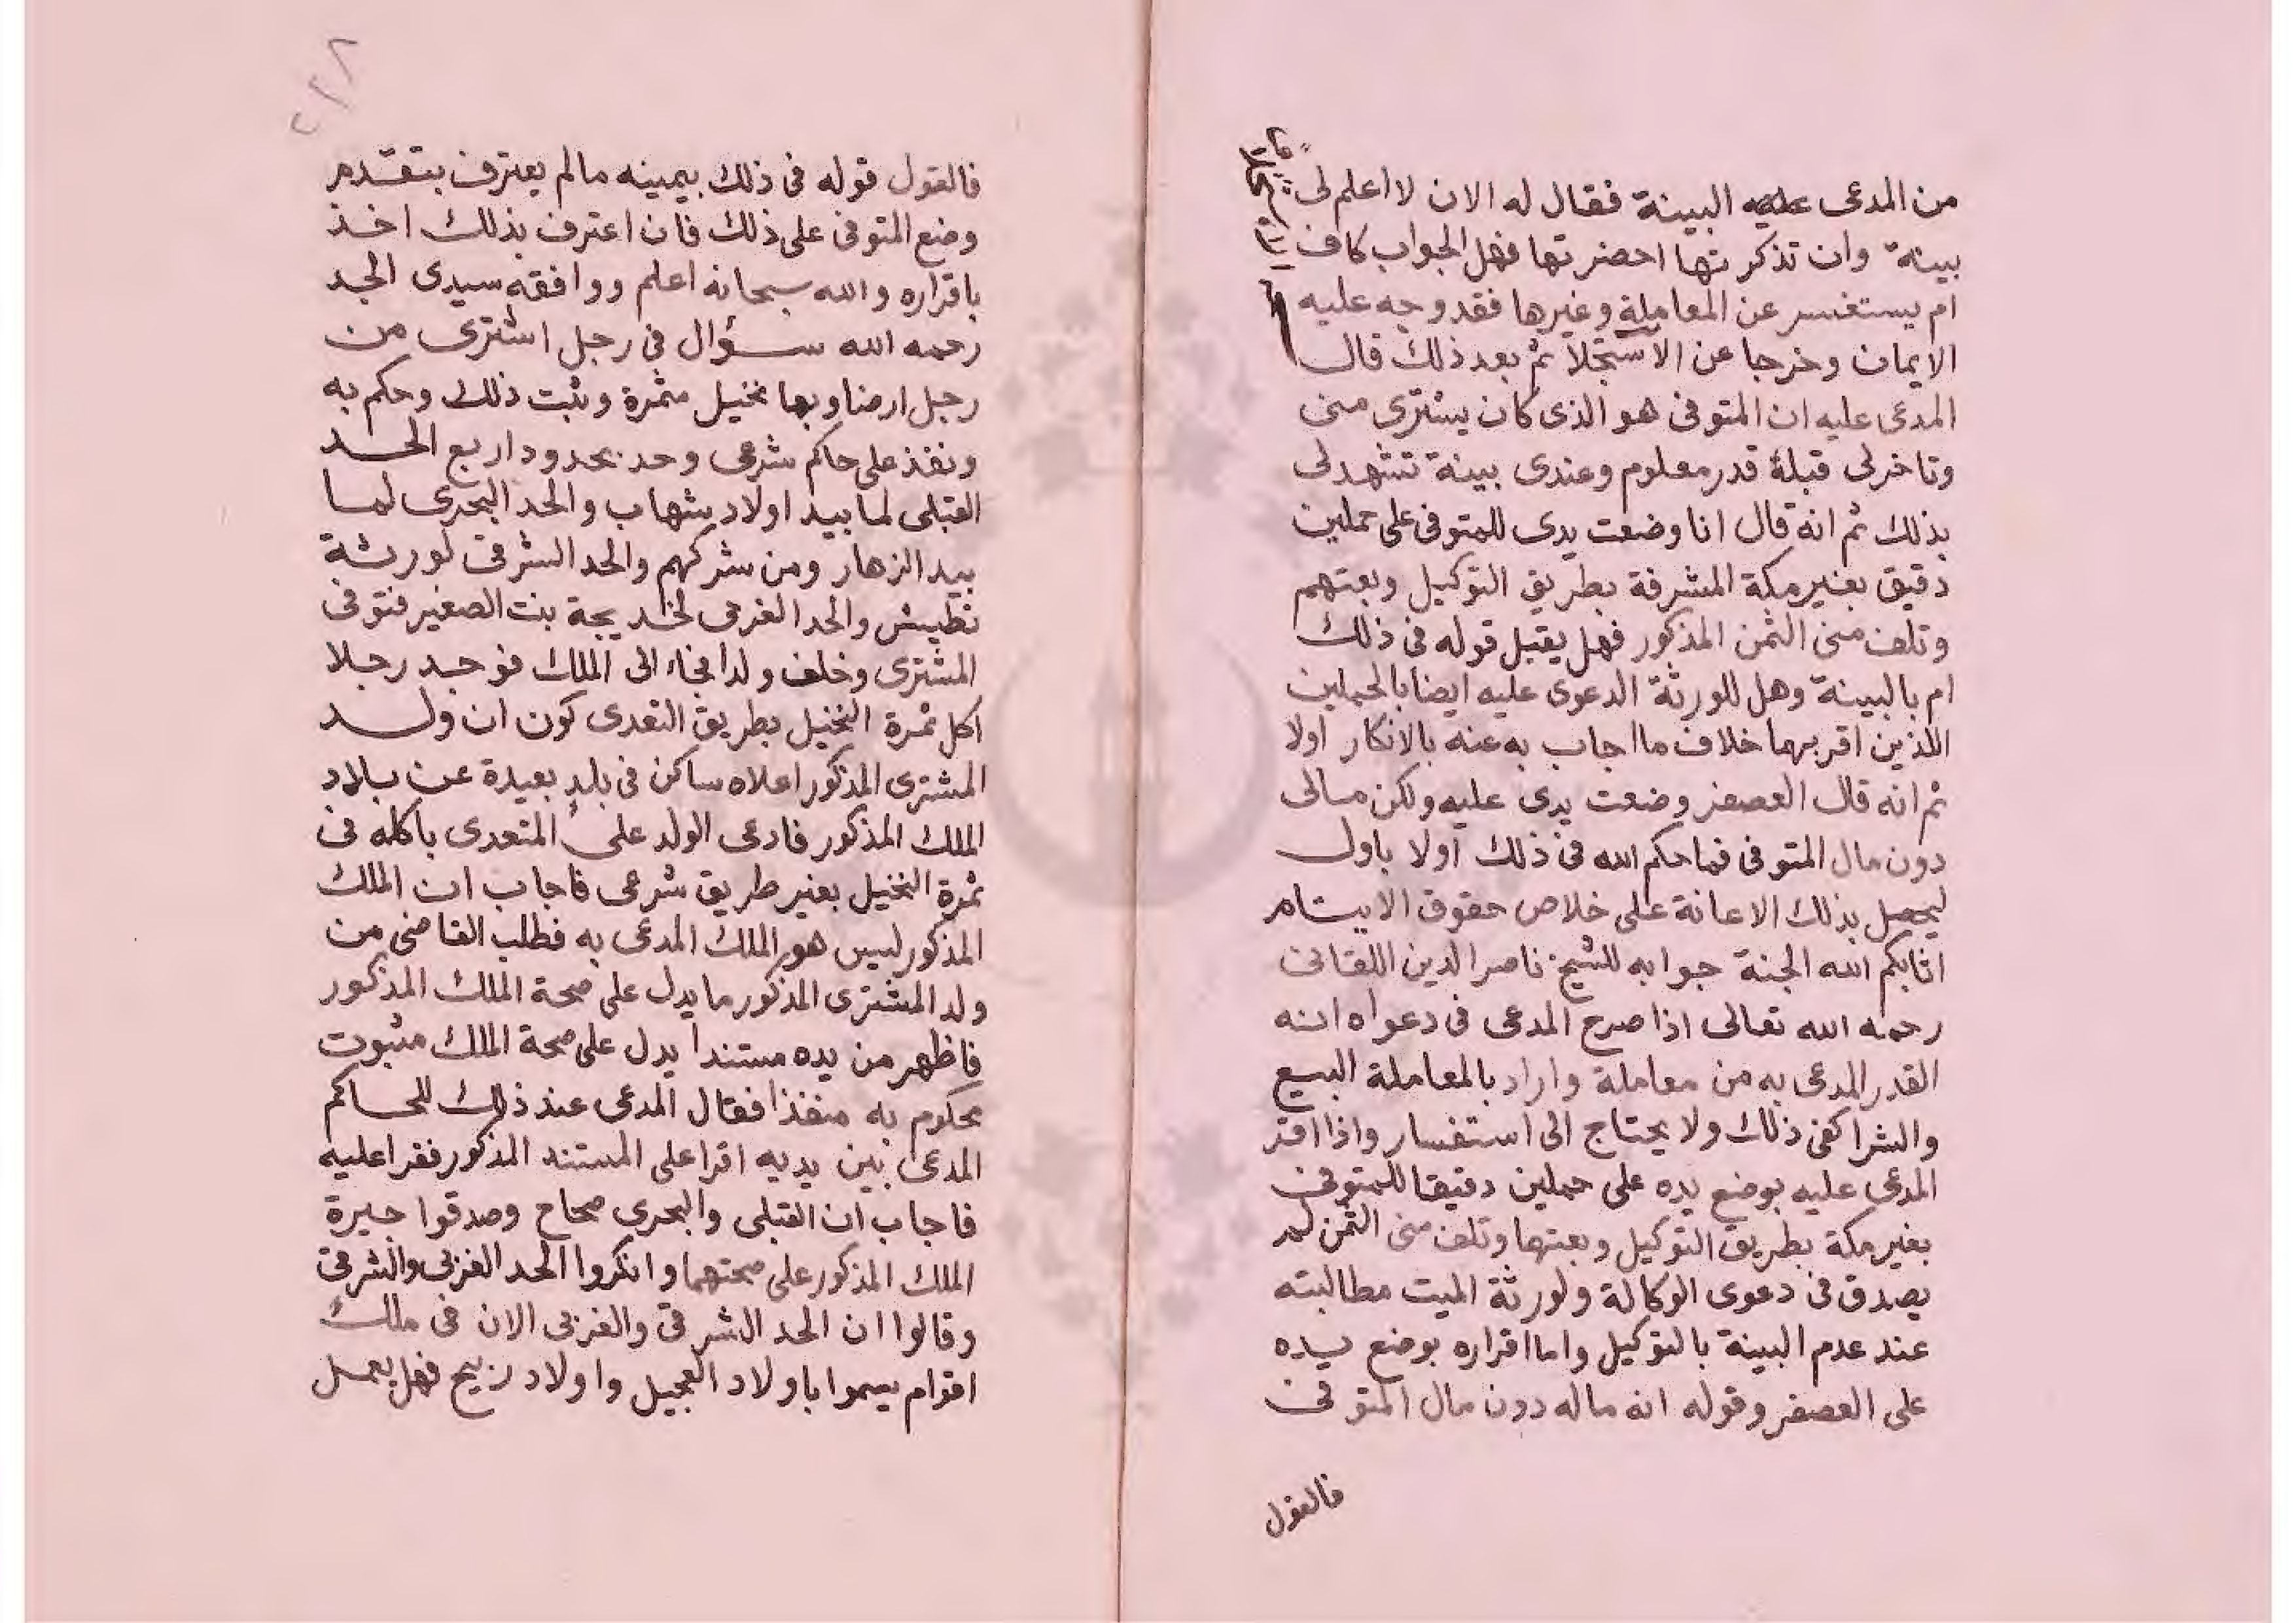 من المدعى عليه البينة فقال له الان لا اعلم لى
بينة وان تذكرتها احضرتها فهل الجواب كاف
ام يستفسر عن المعاملة وغيرها فقد وجه عليه
الايمان وخرجا عن الاستجلا ثم بعد ذلك قال
المدعى عليه ان المتوفى هو الذى كان يشترى منى
وتاخر لى قبله قدر معلوم وعندى بينة تشهد لى
بذلك ثم انه قال انا وضعت يدى للمتوفى على حملين
دقيق بغير مكة المشرفة بطريق التوكيل وبعتهم
وتلف منى الثمن المذكور فهل يقبل قوله فى ذلك
ام بالبينة وهل للورثة الدعوى عليه ايضا بالحملين
اللذين اقر بهما خلاف ما اجاب به عنه بالانكار اولا
ثم انه قال العصفر وضعت يدى عليه ولكن مالى
دون مال المتوفى فما حكم الله فى ذلك اولا باول
ليحصل بذلك الاعانة على خلاص حقوق الايتام
اثابكم الله الجنة جوابه للشيخ ناصر الدين اللقانى
رحمه الله تعالى اذا صرح المدعى فى دعواه انه
القدر المدعى به من معاملة واراد بالمعاملة البيع
والشرا كفى ذلك ولا يحتاج الى استفسار واذا اقر
المدعى عليه بوضع يده على حملين دقيقا للمتوفى
بغير مكة بطريق التوكيل وبعتها وتلف منى الثمن لم
يصدق فى دعوى الوكالة ولورثة الميت مطالبته
عند عدم البينة بالتوكيل واما اقراره بوضع يده
على العصفر وقوله انه ماله دون مال المتوفى
فالقول
فالقول قوله فى ذلك بيمينه مالم يعترف بتقدم
وضع المتوفى على ذلك فان اعترف بذلك اخذ
باقراره والله سبحانه اعلم ووافقه سيدى الجد
رحمه الله سؤال فى رجل اشترى من
رجل ارضا وبها نخيل مثمرة وثبت ذلك وحكم به
ونفذ على حاكم شرعى وحد بحدود اربع الحد
القبلى لما بيد اولاد شهاب والحد البحرى لما
بيد الزهار ومن شركهم والحد الشرقى لورثة
نطيش والحد الغربى لخديجة بنت الصغير فتوفى
المشترى وخلف ولدا فجاء الى الملك فوجد رجلا
اكل ثمرة النخيل بطريق التعدى كون ان ولد
المشترى المذكور اعلاه ساكن فى بلد بعيدة عن بلاد
الملك المذكور فادعى الولد على المتعدى باكله فى
ثمرة النخيل بغير طريق شرعى فاجاب ان الملك
المذكور ليس هو الملك المدعى به فطلب القاضى من
ولد المشترى المذكور ما يدل على صحة الملك المذكور
فاظهر من يده مستندا يدل على صحة الملك مثبوت
محكوم به منفذا فقال المدعى عند ذلك للحاكم
المدعى بين يديه اقرا على المستند المذكور فقرا عليه
فاجاب ان القبلى والبحرى صحاح وصدقوا جيرة
الملك المذكور على صحتهما وانكروا الحد الغربى والشرقى
وقالوا ان الحد الشرقى والغربى الان فى ملك
اقوام يسموا باولاد العجيل واولاد ربيح فهل يعمل